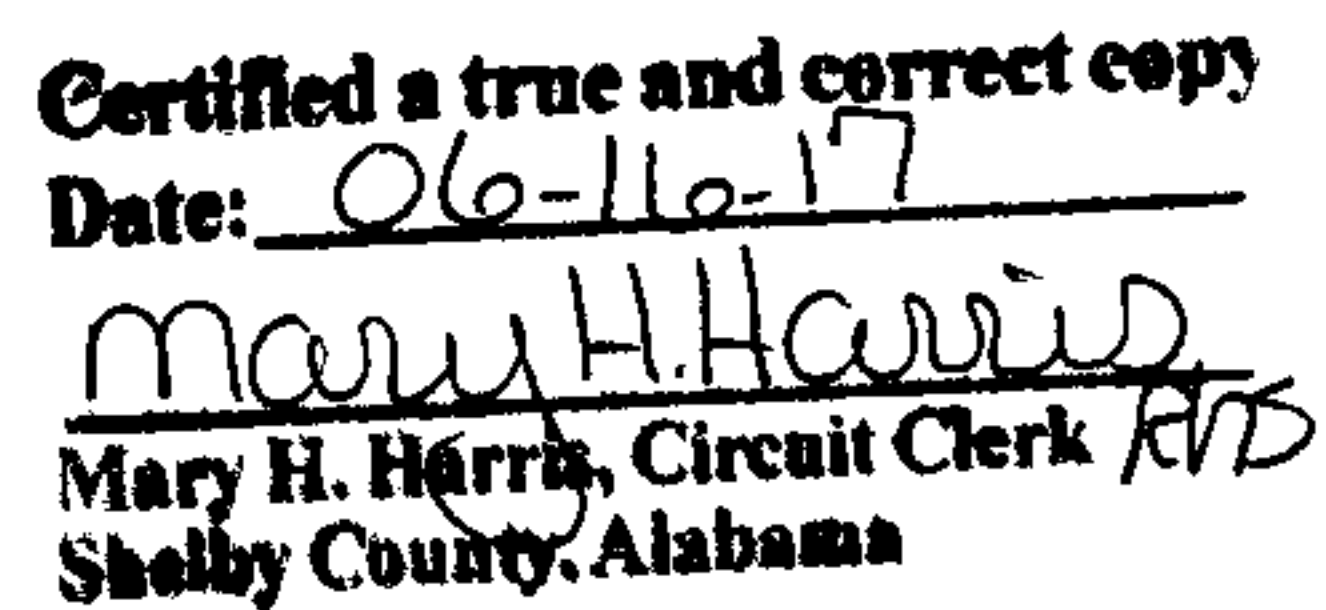 Certified a true and correct copy
Date: 06-16-17
Mary H. Harris
Mary H. Harris, Circuit Clerk
Shelby County, Alabama